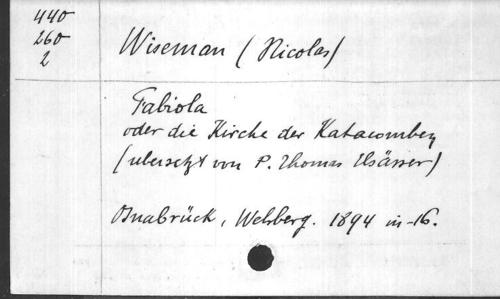 440
260
2
Wiseman (Nicolas)
Fabiola
oder die Kirche der Katacomben
(übersetzt von P. Thomas Elsässer)
Osnabrück, Wehberg. 1894 in-16.